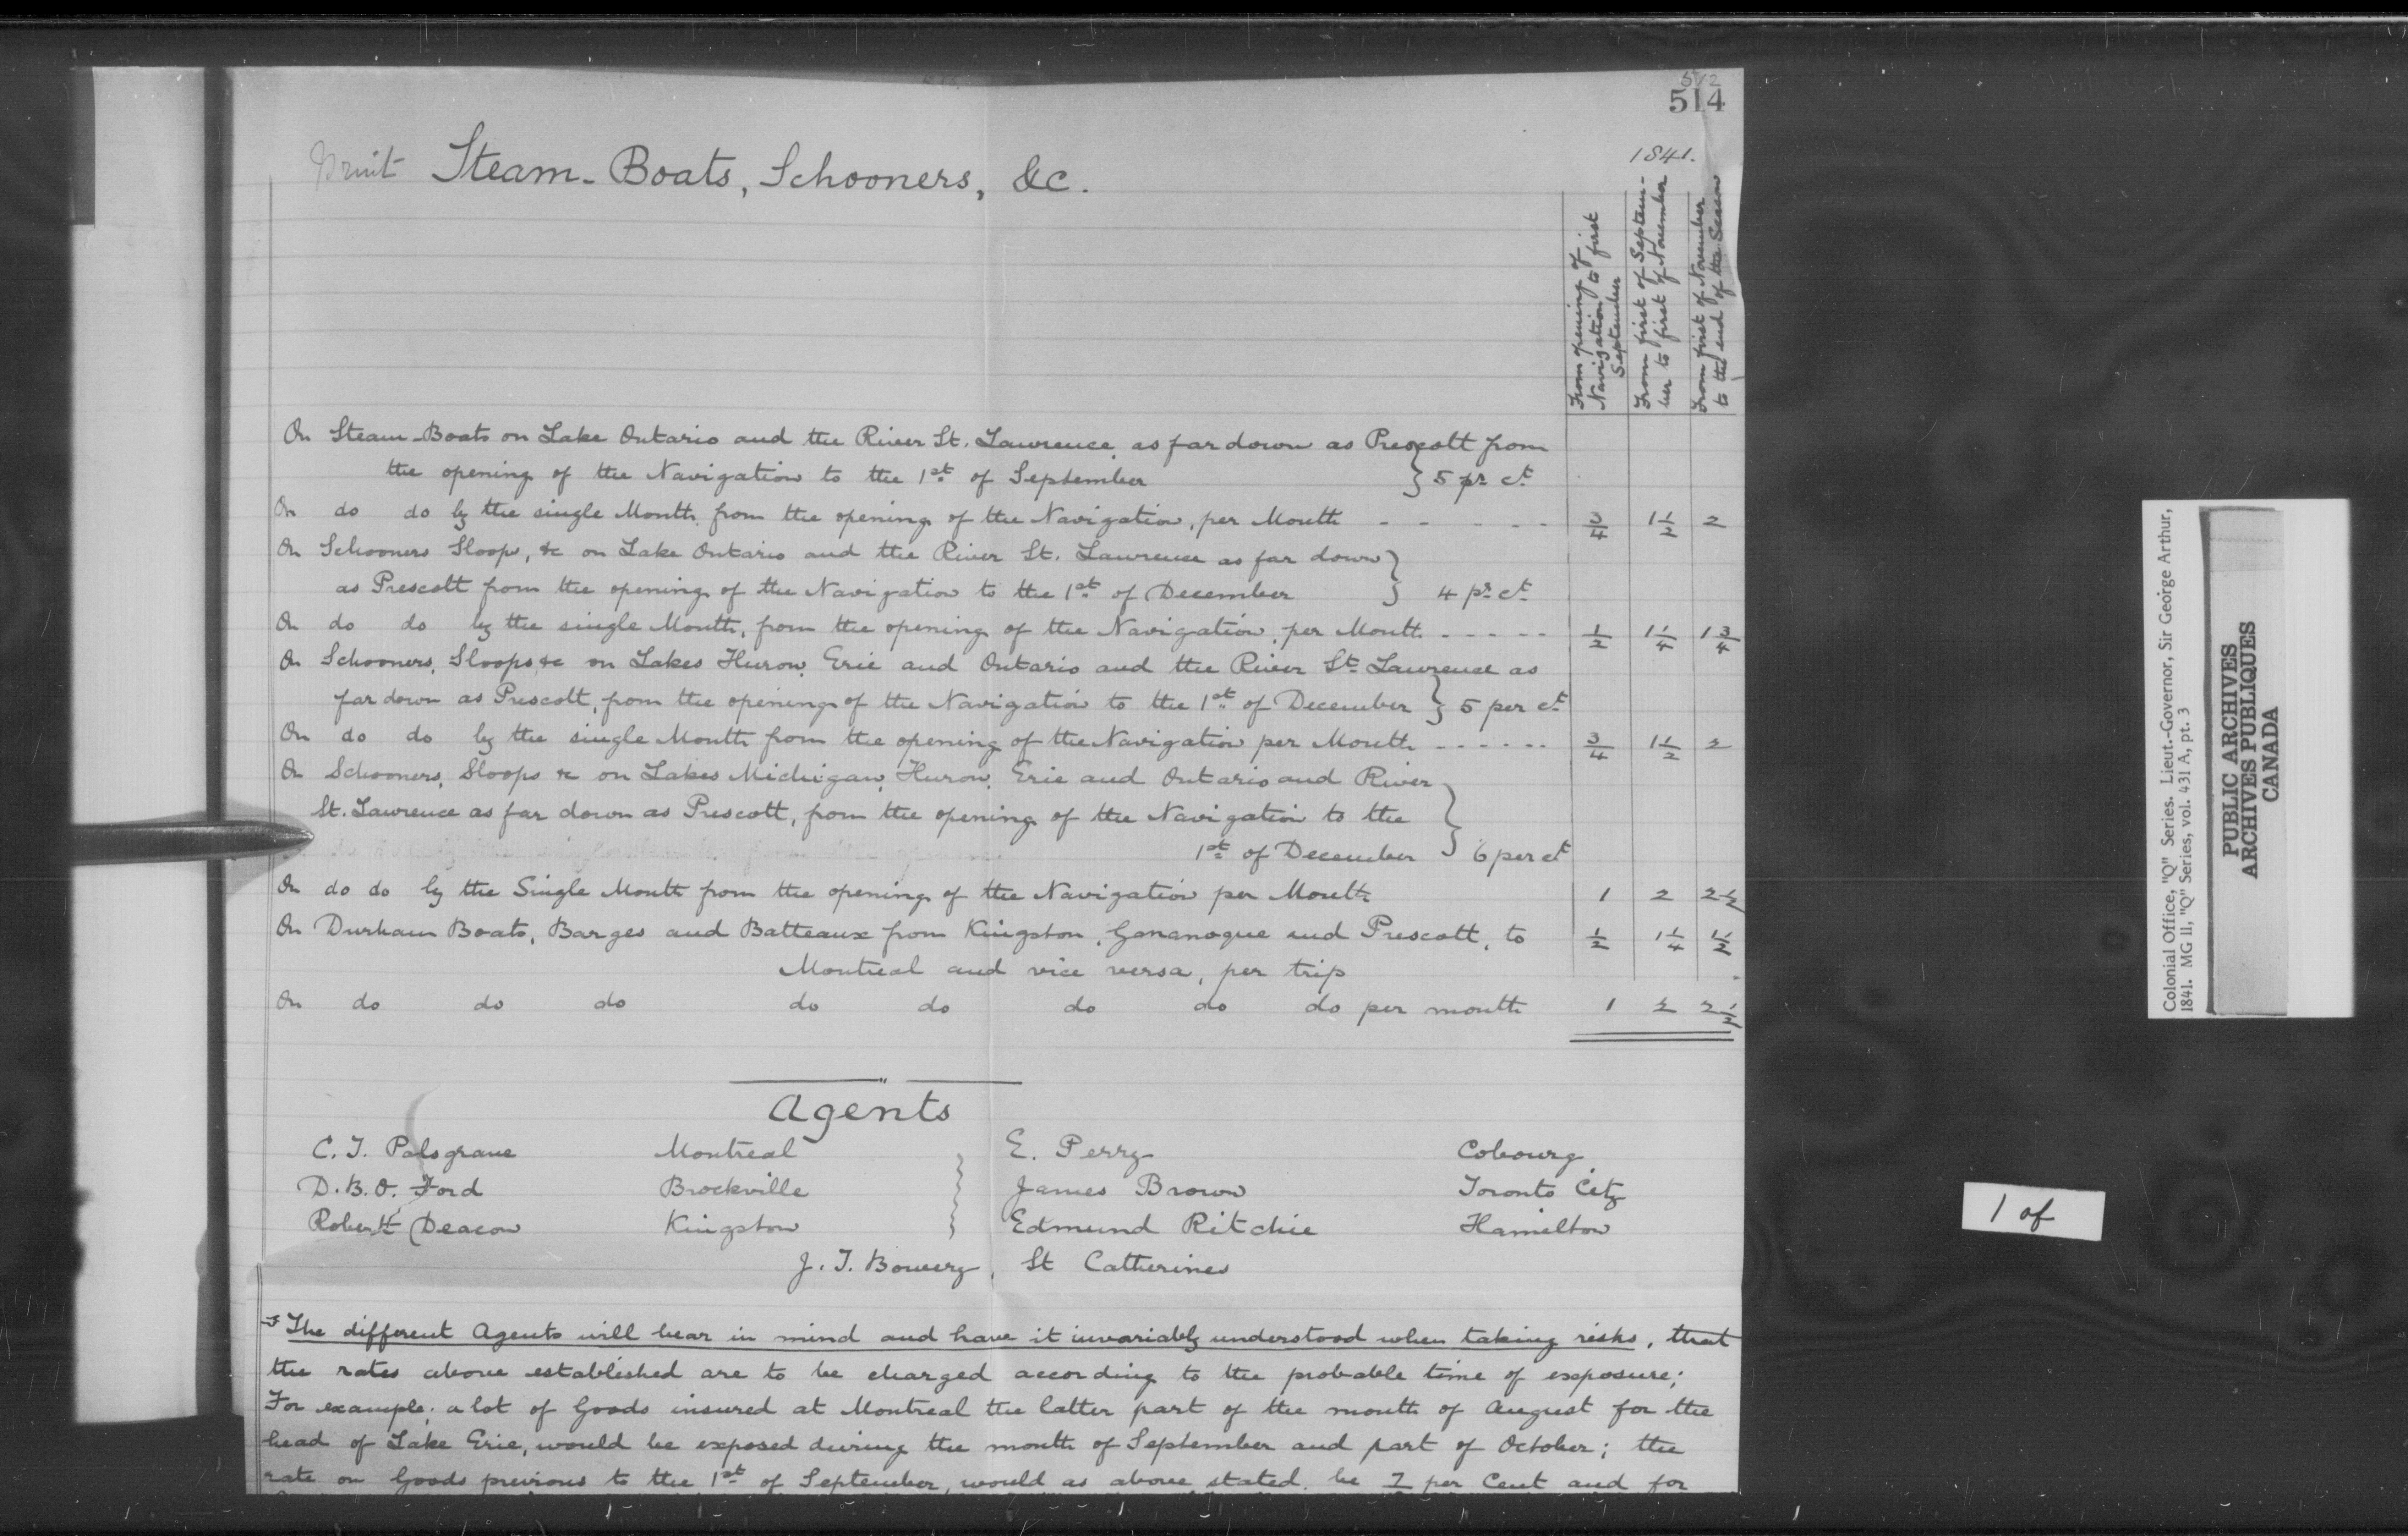 512
514
1841.
Steam-Boats, Schooners, &c.
From opening of Navigation to first September
From first of Septem-ber to first of November
From first of November to the end of the Season
On Steam-Boats on Lake Ontario and the River St. Lawrence, as far down as Prescott from
the opening of the Navigation to the 1st of September } 5 pr ct
On do do by the single Month from the opening of the Navigation, per Month - - - - - 3/4 1 1/2 2
On Schooners Sloops, &c on Lake Ontario and the River St. Lawrence as far down
as Prescott from the opening of the Navigation to the 1st of December } 4 pr ct
On do do by the single Month, from the opening of the Navigation, per Month - - - - - 1/2 1 1/4 1 3/4
On Schooners, Sloops &c on Lakes Huron, Erie and Ontario and the River St. Lawrence as
far down as Prescott, from the opening of the Navigation to the 1st of December } 5 per ct
On do do by the single Month from the opening of the Navigation per Month - - - - - - 3/4 1 1/2 2
On Schooners, Sloops &c on Lakes Michigan, Huron, Erie and Ontario and River
St. Lawrence as far down as Prescott, from the opening of the Navigation to the
1st of December } 6 per ct
On do do by the Single Month from the opening of the Navigation per Month 1 2 2 1/2
On Durham Boats, Barges and Batteaux from Kingston, Gananoque and Prescott, to 1/2 1 1/4 1 1/2
Montreal and vice versa, per trip
On do do do do do do do do per month 1 2 2 1/2
Agents
C. T. Palsgrave Montreal } E. Perry Cobourg
D. B. O. Ford Brockville } James Brown Toronto City
Robert Deacon Kingston } Edmund Ritchie Hamilton
J. T. Bowery, St Catherines
The different Agents will bear in mind and have it invariably understood when taking risks, that
the rates above established are to be charged according to the probable time of exposure;
For example; a lot of Goods insured at Montreal the latter part of the month of August for the
head of Lake Erie, would be exposed during the month of September and part of October; the
rate on Goods previous to the 1st of September, would as above stated. be 7 per Cent and for
Colonial Office, "Q" Series. Lieut.-Governor, Sir George Arthur,
1841. MG 11, "Q" Series, vol. 431 A, pt. 3
PUBLIC ARCHIVES
ARCHIVES PUBLIQUES
CANADA
1 of